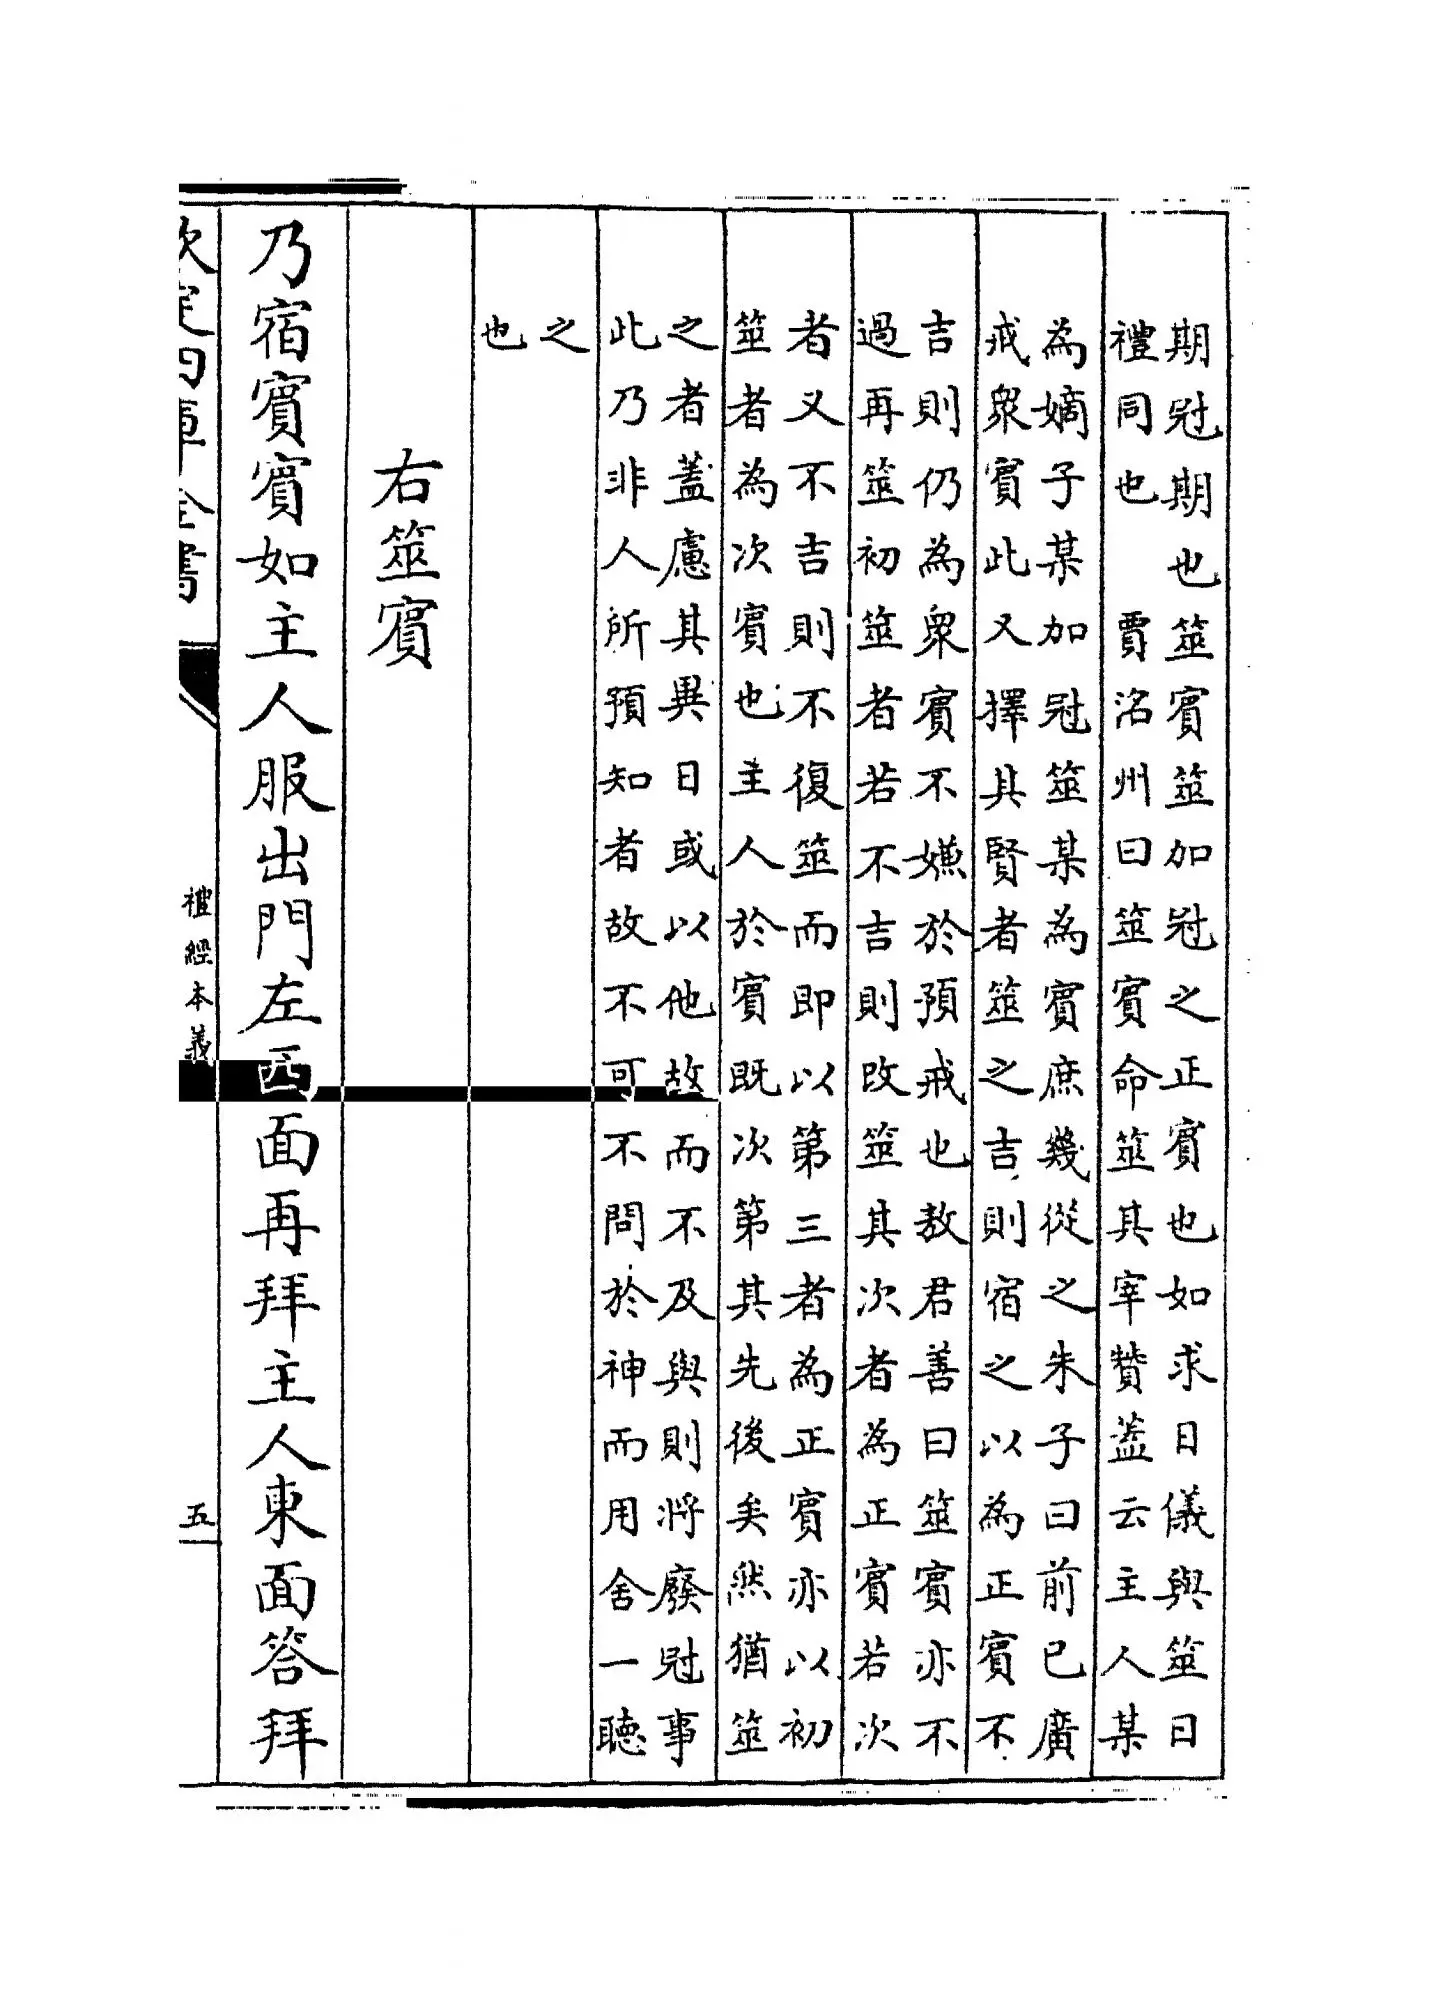 期冠期也筮賓筮加冠之正賓也如求日儀與筮日
禮同也　賈洺州曰筮賓命筮其宰贊葢云主人某
為嫡子某加冠筮某為賓庶幾從之朱子曰前已廣
戒衆賓此又擇其賢者筮之吉則宿之以為正賓不
吉則仍為衆賓不嫌於預戒也敖君善曰筮賓亦不
過再筮初筮者若不吉則改筮其次者為正賓若次
者又不吉則不復筮而即以第三者為正賓亦以初
筮者為次賓也主人於賓既次第其先後矣然猶筮
之者蓋慮其異日或以他故而不及與則將廢冠事
此乃非人所預知者故不可不問於神而用舍一聽
之
也
右筮賓
乃宿賓賓如主人服出門左西面再拜主人東面答拜
欽定四庫全書
禮經本義
五